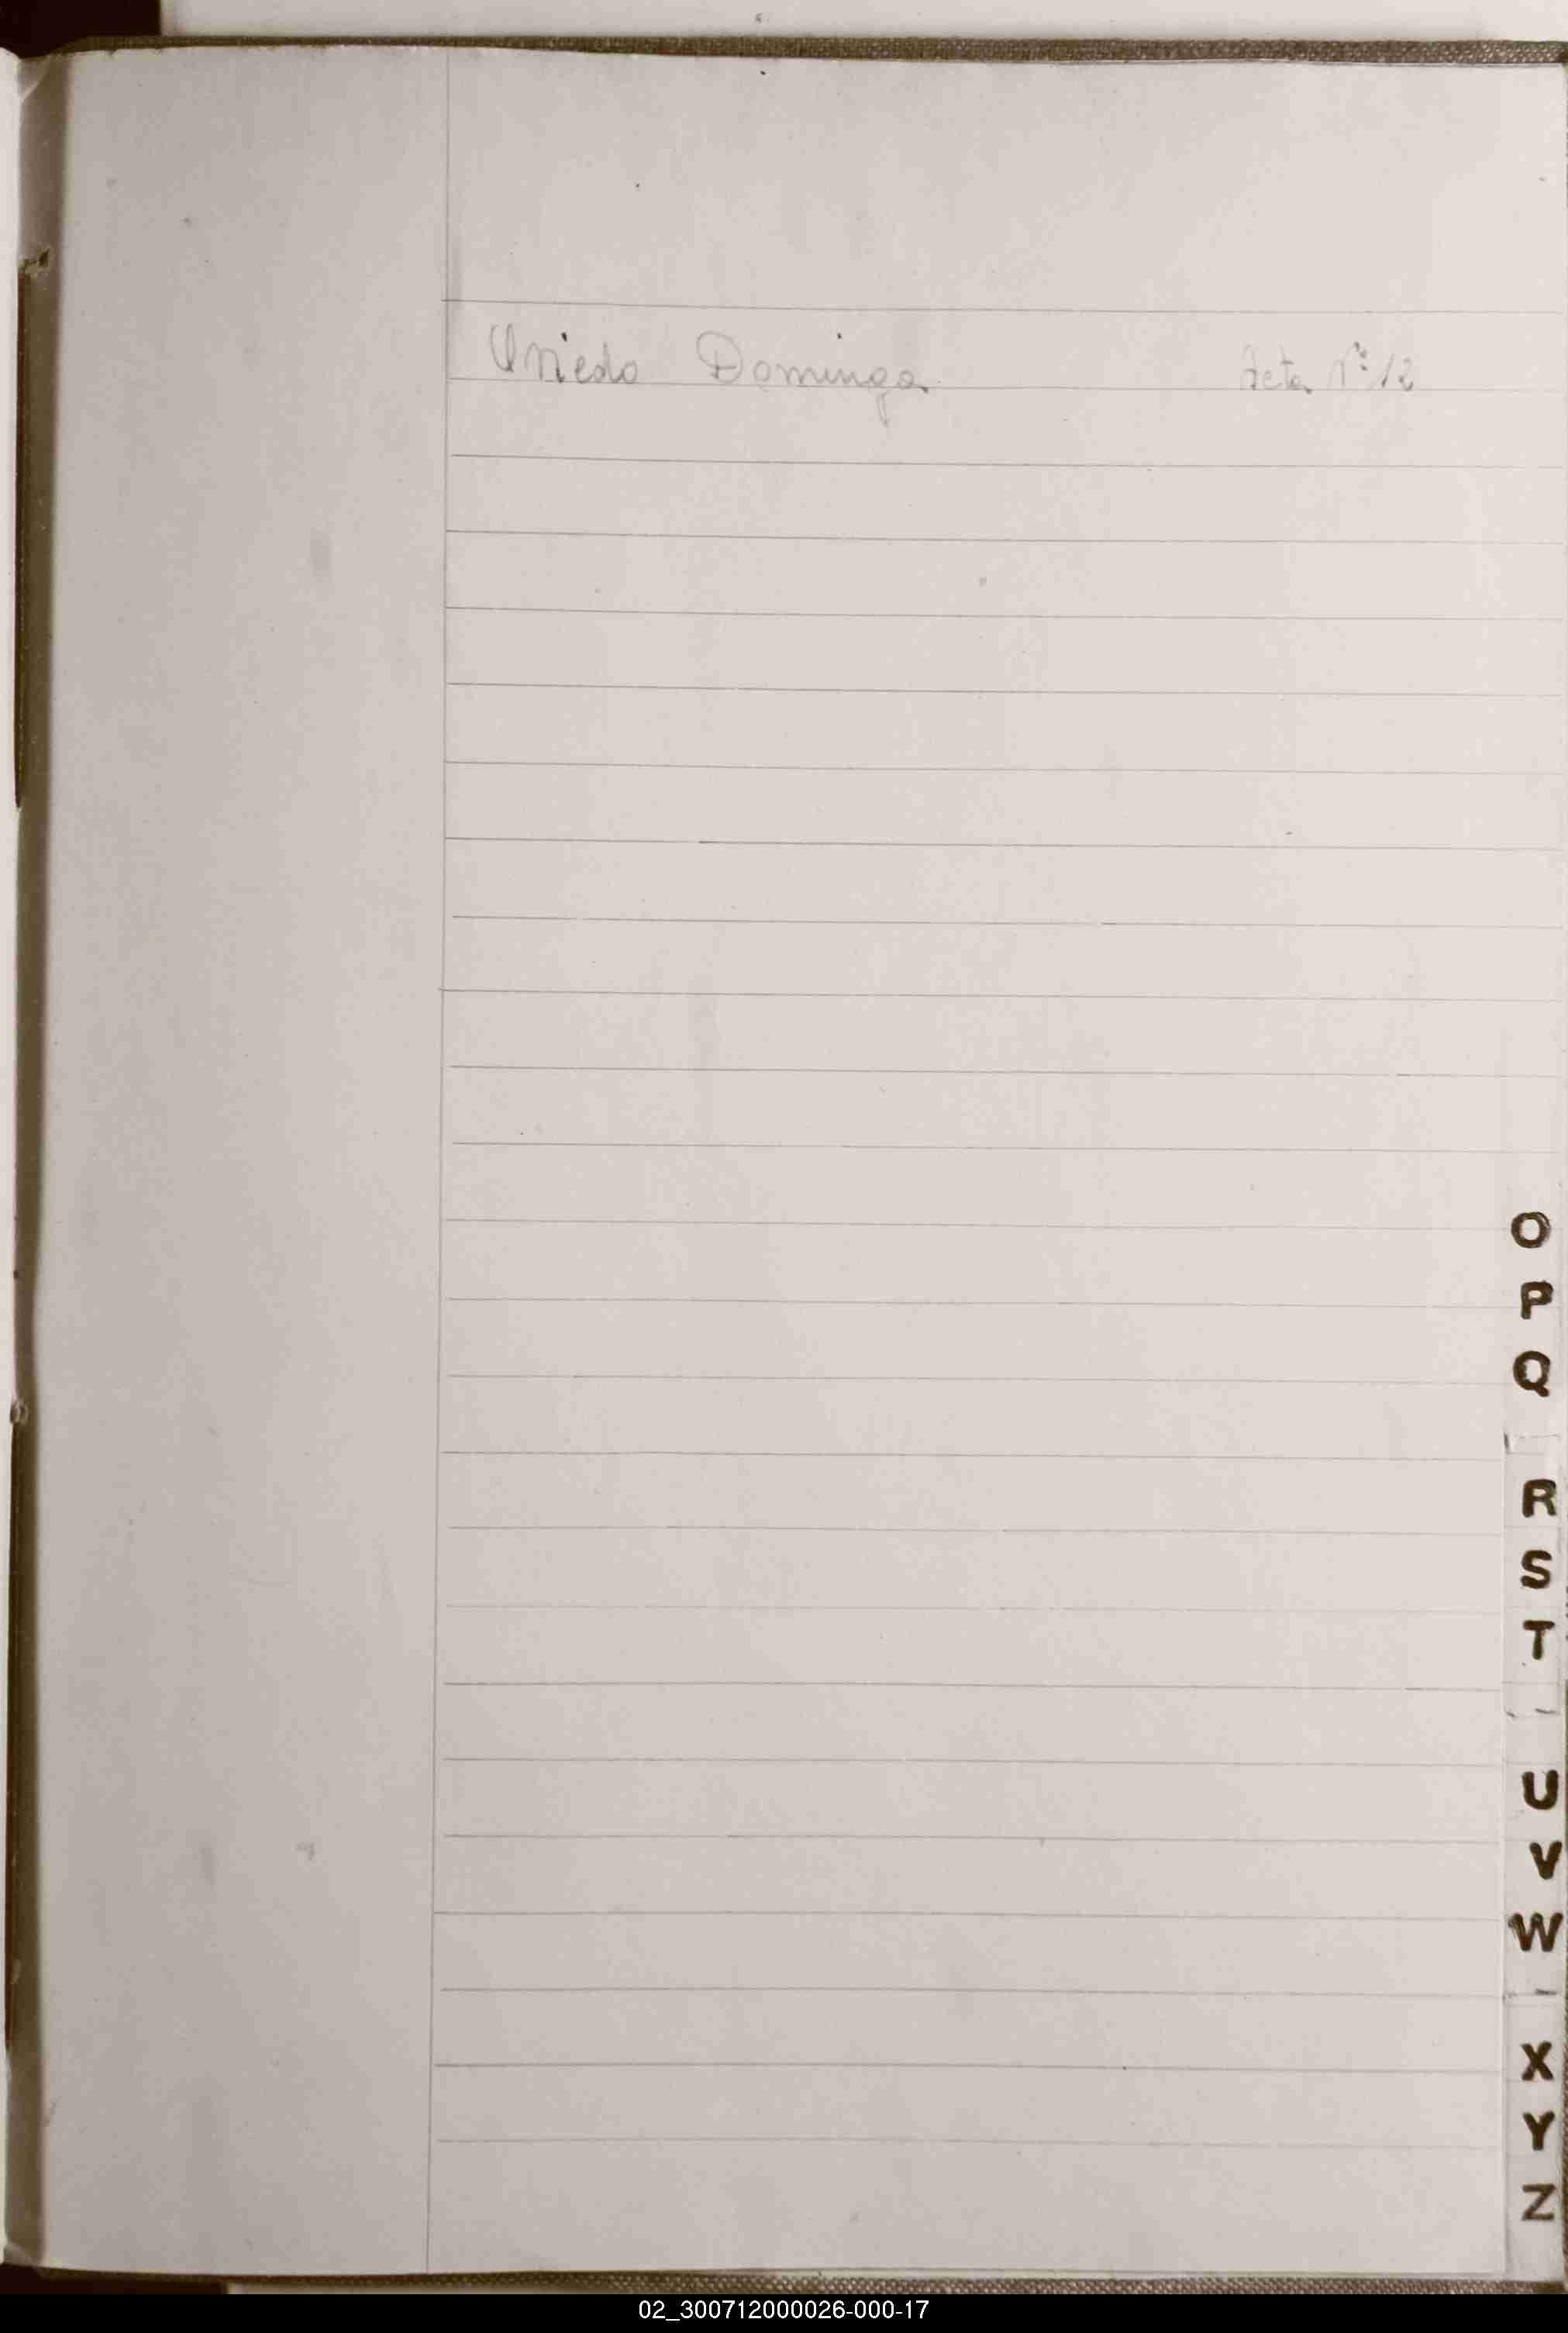 Oviedo Dominga Acta Nº 12
O
P
Q
R
S
T
U
V
W
X
Y
Z
02_300712000026-000-17